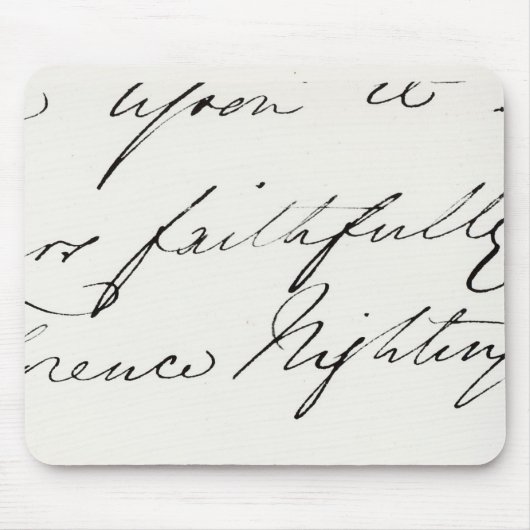 upon it
rs faithfully
rence Nighting